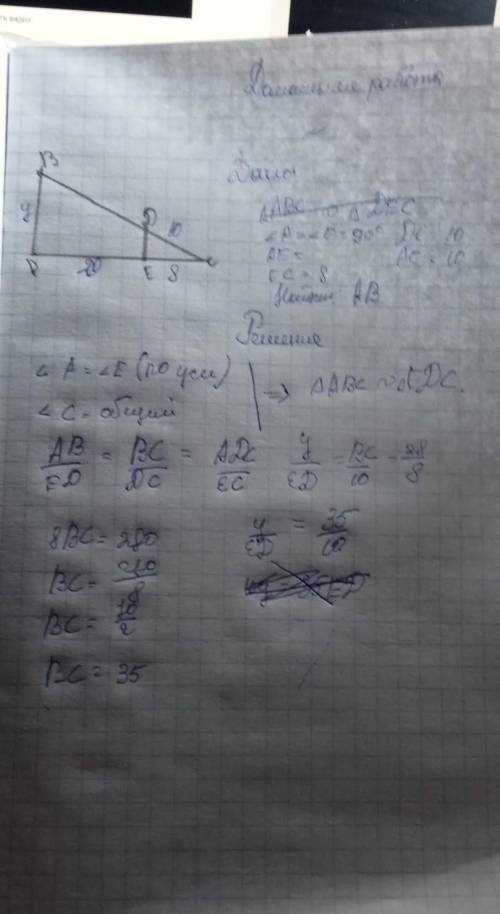 Домашняя работа
B
D
10
y
20
E
8
C
Дано:
△ABC ∾ △DEC
∠A = ∠E = 90° DC = 10
AE = AC = 10
EC = 8
Найти: AB
Решение
∠A = ∠E (по усл)
∠C = общий
⇒ △ABC ∾ DC.
AB/ED = BC/DC = AC/EC y/ED = BC/10 = 28/8
8BC = 280 y/ED = 35/10
BC = 280/8
BC = 70/2
BC = 35